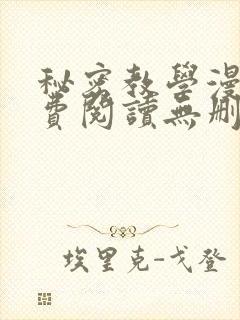 秘密教學漫
費閱讀無刪
埃里克-戈登